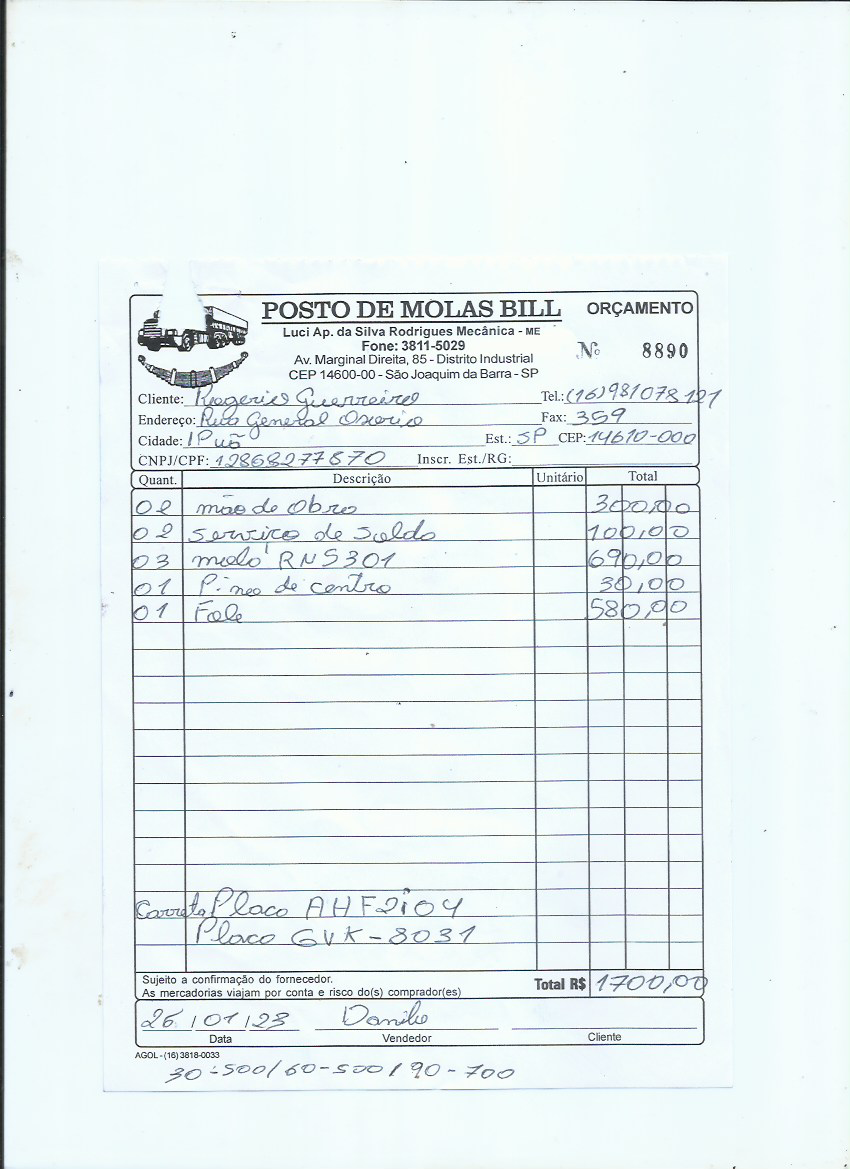 POSTO DE MOLAS BILL
ORÇAMENTO
Luci Ap. da Silva Rodrigues Mecânica - ME
Fone: 3811-5029
Av. Marginal Direita, 85 - Distrito Industrial
CEP 14600-00 - São Joaquim da Barra - SP
Nº 8890
Cliente: Rogerio Guerreiro Tel.: (16) 981078121
Endereço: Rua General Osorio Fax: 359
Cidade: IPuã Est.: SP CEP: 14610-000
CNPJ/CPF: 12868277870 Inscr. Est./RG:
Quant. Descrição Unitário Total
02 mão de Obra 300,00
02 serviço de Solda 100,00
03 mola RNS301 690,00
01 Pineo de centro 30,00
01 Fole 580,00
Carreta Placa AHF2i04
Placa GVK-8031
Sujeito a confirmação do fornecedor.
As mercadorias viajam por conta e risco do(s) comprador(es)
Total R$ 1700,00
26/01/23 Danilo
Data Vendedor Cliente
AGOL - (16) 3818-0033
30-500/60-500/90-700